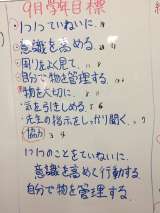 9月学年目標
・1つ1つていねいに。
・意識を高める。
・周りをよく見て、
・自分で物を管理する。
・物を大切に。
・気を引きしめる。
・先生の指示をしっかり聞く。
・協力
1つ1つのことをていねいに
意識を高めて行動する
自分で物を管理する